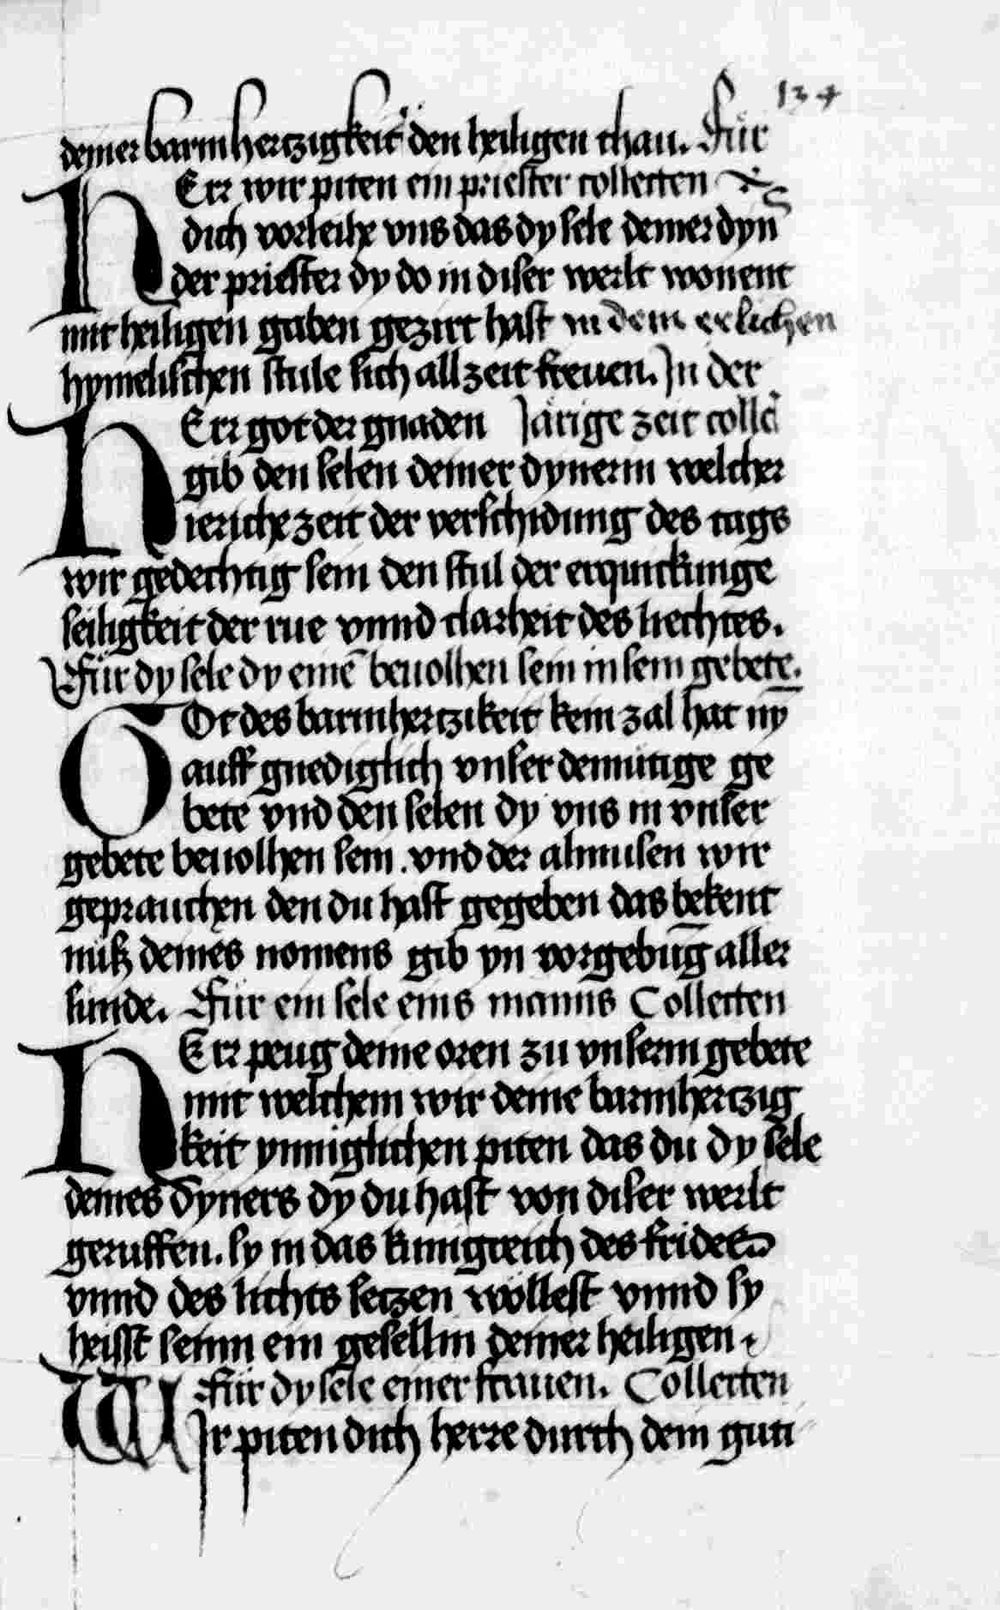 134
deiner barmhertzigkeit den heiligen thau. Für
HErr wir piten ein priester collecten
dich vorleihe vns das dy sele deiner dyn
der priester dy do in diser werlt wonent
mit heiligen gaben gezirt hast in dem erlichen
hymelischen stule sich allzeit freuen. In der
HErr got der gnaden Järige zeit coll
gib den selen deiner dynerin welcher
ieriche zeit der verschidung des tags
wir gedechtig sein den stul der erquickunge
seiligkeit der rue vnnd clarheit des liechtes.
Für dy sele dy einē beuolhen sein in sein gebete.
GOt des barmhertzikeit kein zal hat nȳ
auff gnediglich vnser demütige ge
bete vnd den selen dy vns in vnser
gebete beuolhen sein. vnd der almusen wir
geprauchen den du hast gegeben das bekent
nuß deines nomens gib yn vorgebūg aller
sunde. Für ein sele eins manns Collecten
HErr peug deine oren zu vnserm gebete
mit welchem wir deine barmhertzig
keit ynniglichen piten das du dy sele
deines dyners dy du hast von diser werlt
geruffen. sy in das kunigreich des frides
vnnd des lichts setzen wöllest vnnd sy
heisst seinn ein gesellin deiner heiligen.
Für dy sele einer frauen. Collecten
WIr piten dich herre durch dein guti